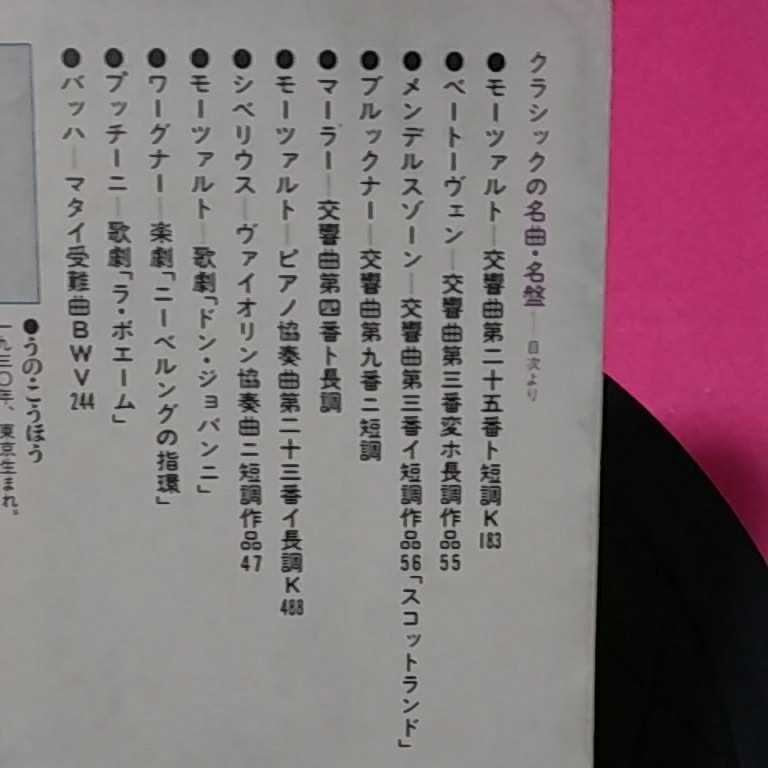 クラシックの名曲・名盤―目次より
●モーツァルト―交響曲第二十五番ト短調K183
●ベートーヴェン―交響曲第三番変ホ長調作品55
●メンデルスゾーン―交響曲第三番イ短調作品56「スコットランド」
●ブルックナー―交響曲第九番ニ短調
●マーラー―交響曲第四番ト長調
●モーツァルト―ピアノ協奏曲第二十三番イ長調K488
●シベリウス―ヴァイオリン協奏曲ニ短調作品47
●モーツァルト―歌劇「ドン・ジョバンニ」
●ワーグナー―楽劇「ニーベルングの指環」
●プッチーニ―歌劇「ラ・ボエーム」
●バッハ―マタイ受難曲BWV244
●うの・こうほう
一九三〇年、東京生まれ。